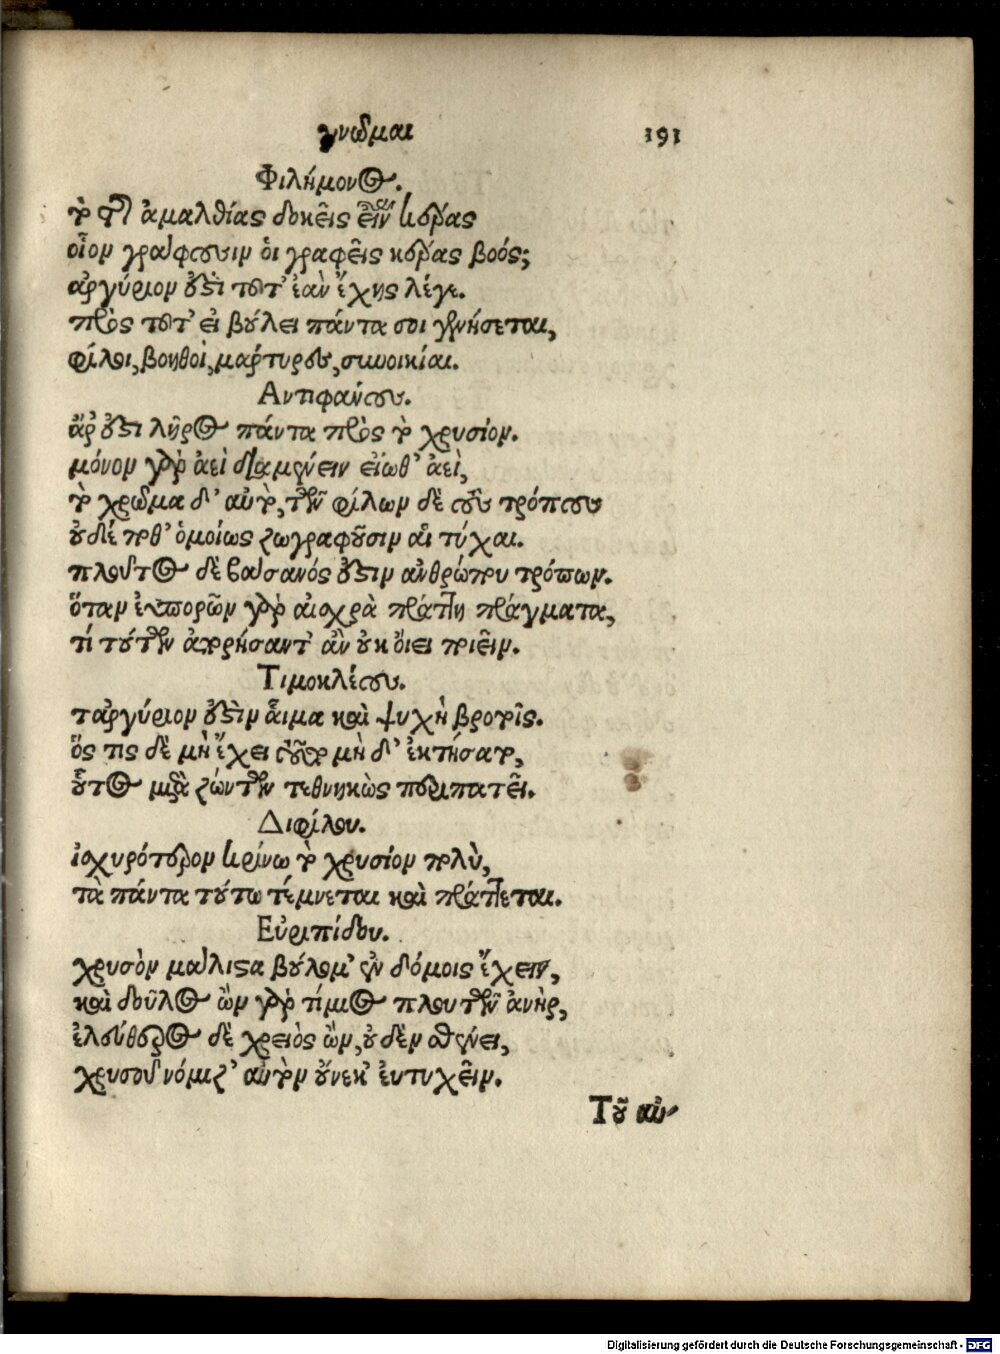 γνῶμαι 191
Φιλήμονος.
τὸ τῆς ἀμαλθίας δοκεῖς εἶναι κέρας
οἷον γράφουσιν ὁι γραφεῖς κέρας βοός;
ἀργύριον ὅστι τοῦτ' ἐὰν ἔχῃς λέγε.
πρὸς τοῦτ' ει βούλει πάντα σοι γενήσεται,
φίλοι, βοηθοὶ, μάρτυρες, συνοικίαι.
Αντιφάνους.
ἆρ' ὅστι λῆρος πάντα πρὸς τὸ χρυσίον.
μόνον γὰρ ἀεὶ διαμένειν εἴωθ' ἀεὶ,
τὸ χρῶμα δ' αὐτὸ, τῶν φίλων δὲ τοὺς τρόπους
οὐδέποθ' ὁμοίως ζωγραφοῦσιν αἱ τύχαι.
πλοῦτος δὲ βάσανός ὅστιν ἀνθρώπου τρόπων.
ὅταν ἐυπορῶν γὰρ αἰσχρὰ πράττῃ πράγματα,
τί τούτων ἀπορήσαντ' ἂν οὐκ ὄιει ποιεῖν.
Τιμοκλέους.
ταργύριον ὅστὶν ἇιμα καὶ ψυχὴ βροτοῖς.
ὅς τις δὲ μὴ ἔχει τοῦτο μὴ δ' ἐκτήσατο,
οὗτος μετὰ ζώντων τεθνηκὼς περιπατεῖ.
Διφίλου.
ἰσχυρότερον κρίνω τὸ χρυσίον πολὺ,
τὰ πάντα τούτω τέμνεται καὶ πράττεται.
Εὐριπίδου.
χρυσὸν μάλιστα βούλομ' ἐν δόμοις ἔχειν,
καὶ δοῦλος ὢν γὰρ τίμιος πλουτῶν ἀνὴρ,
ἐλεύθερος δὲ χρειὸς ὢν, οὐδὲν σθένει,
χρυσοῦ νόμιζ' αὑτὸν οὕνεκ' ἐυτυχεῖν.
Τοῦ αὐ-
Digitalisierung gefördert durch die Deutsche Forschungsgemeinschaft - DFG